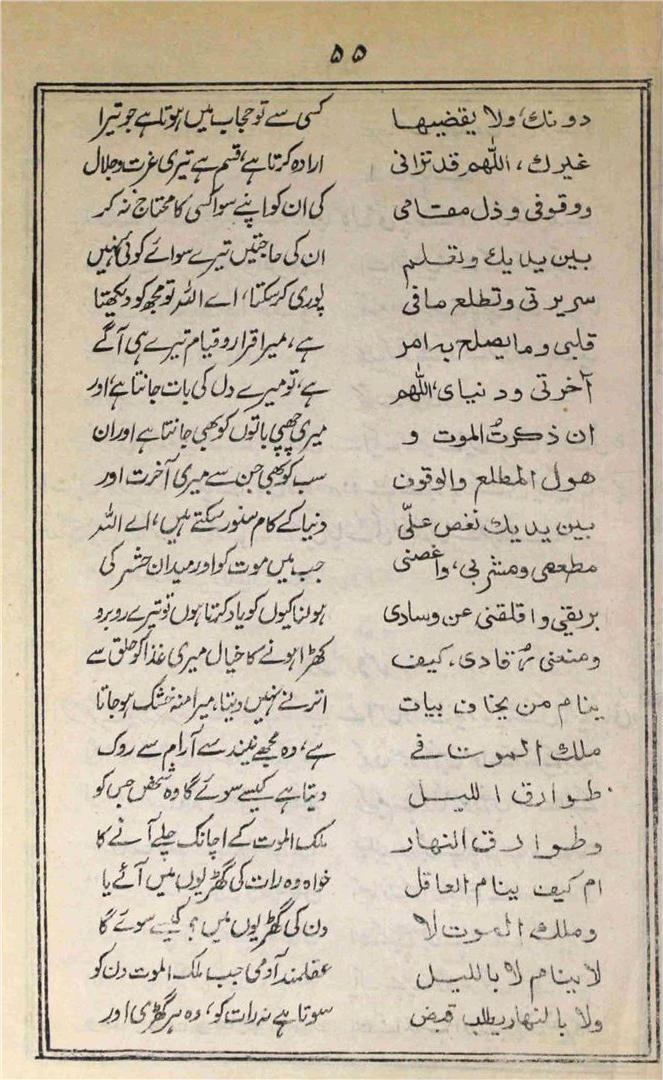 ۵۵
دونك، ولا يقضيها
غيرك، اللّٰهم قد ترانى
ووقوفى وذل مقامى
بين يديك وتعلم
سريرتى وتطلع مافى
قلبى وما يصلح به امر
آخرتى ودنياى، اللّٰهم
ان ذكرت الموت و
هول المطلع والوقوف
بين يديك نغص علىّ
مطعمى ومشربى، واغصنى
بريقى واقلقنى عن وسادى
ومنعنى رقادى، كيف
ينام من يخاف بيات
ملك الموت فى
طوارق الليل
وطوارق النهار
ام كيف ينام العاقل
وملك الموت لا
لا ينام لا بالليل
ولا بالنهار يطلب قبض
کسی سے تو حجاب میں ہوتا ہے جو تیرا
ارادہ کرتا ہے، قسم ہے تیری عزت وجلال
کی ان کو اپنے سوا کسی کا محتاج نہ کر
ان کی حاجتیں تیرے سوائے کوئی نہیں
پوری کر سکتا، اے اللہ تو مجھ کو دیکھتا
ہے، میرا قرار و قیام تیرے ہی آگے
ہے، تو میرے دل کی بات جانتا ہے، اور
میری چھپی باتوں کو بھی جانتا ہے اور ان
سب کو بھی جن سے میری آخرت اور
دنیا کے کام سنور سکتے ہیں، اے اللہ
جب میں موت کو اور میدان حشر کی
ہولناکیوں کو یاد کرتا ہوں تو تیرے روبرو
کھڑا ہونے کا خیال میری غذا کو حلق سے
اترنے نہیں دیتا، میرا منہ خشک ہو جاتا
ہے، وہ مجھے نیند سے آرام سے روک
دیتا ہے کیسے سوئے گا وہ شخص جس کو
ملک الموت کے اچانک چلے آنے کا
خواہ وہ رات کی گھڑیوں میں آئے یا
دن کی گھڑیوں میں؟ کیسے سوئے گا
عقلمند آدمی جب ملک الموت دن کو
سوتا ہے نہ رات کو، وہ ہر گھڑی اور